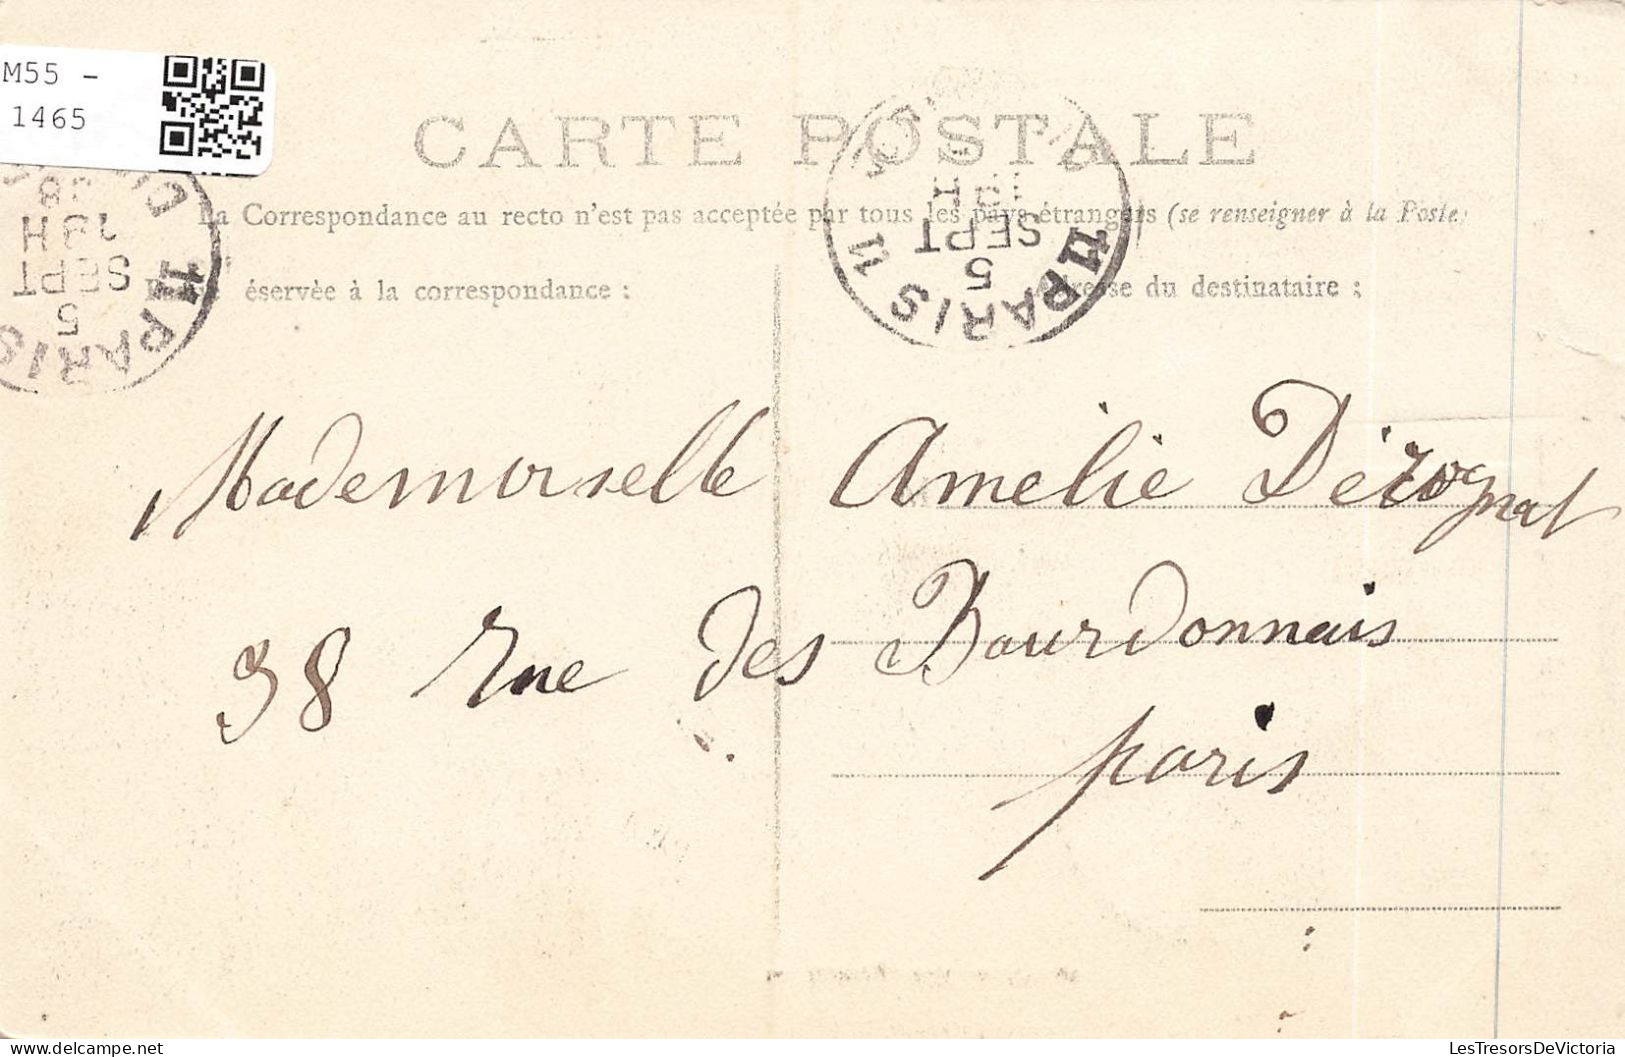 M55 -
1465
CARTE POSTALE
La Correspondance au recto n'est pas acceptée par tous les pays étrangers (se renseigner à la Poste)
éservée à la correspondance :
Adresse du destinataire :
PARIS 11
5
SEPT
PARIS 11
5
SEPT
Mademoiselle Amelie Dérognat
38 rue des Bourdonnais
paris
LesTresorsDeVictoria